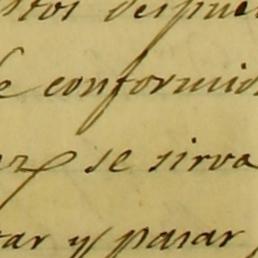 stos despue
e conformid
ez se sirva
tar y pasar